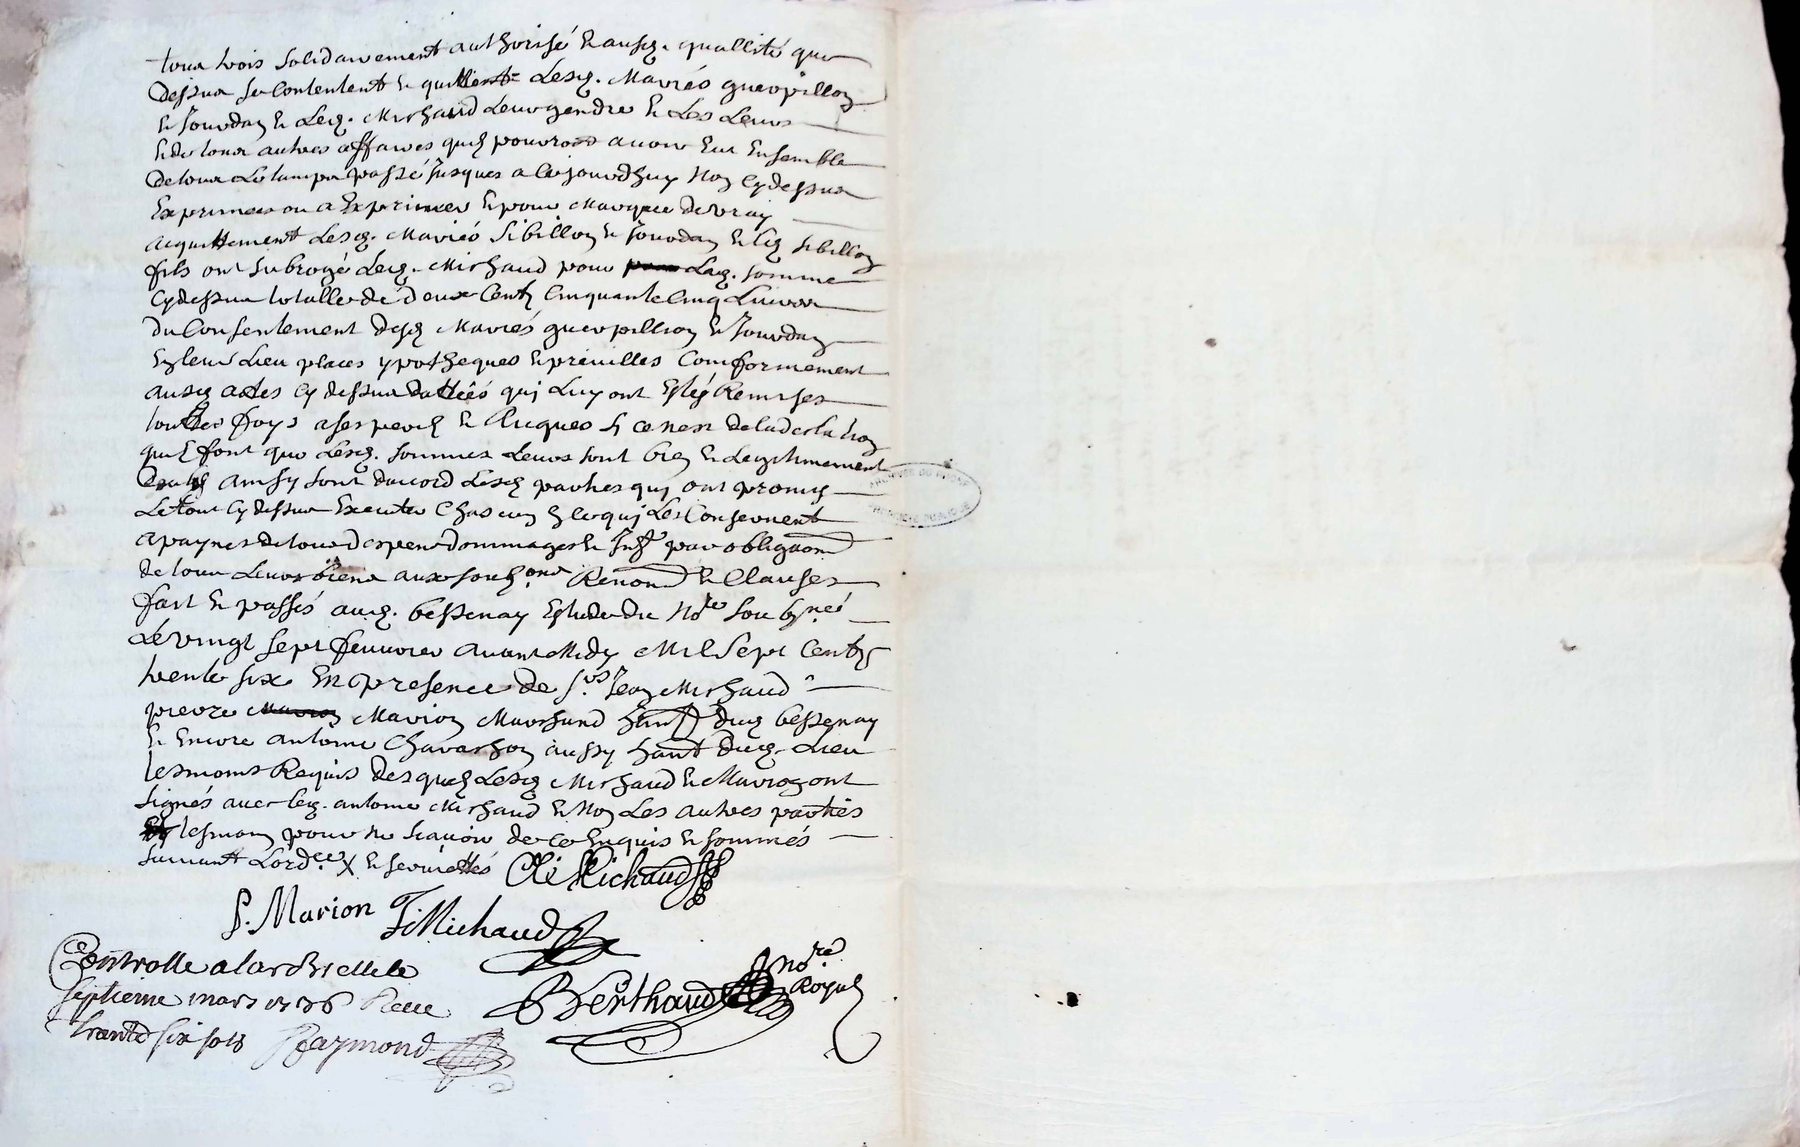 tous trois solidairement authorisé et ausd. quallité que
dessus se contentent et quittent lesd. mariés guerpillon
et Jourdan et led. Michaud leur gendre et les leurs
et de tous autres affaires quils pouvront avoir eut ensemble
de tous le tamps passé jusques a ce jourdhuy non cy dessus
exprimees ou a exprimer et pour marque de vray
acquittement lesd. mariés sibillon et Jourdan et led sibillon
fils ont subrogé led. Michaud pour lad. somme
cy dessus totalle de deux cents cinquante cinq livres
du consentement desd mariés guerpillion et Jourdan
en leur lieu places ypotheques et privilles comformement
ausd actes cy dessus dattéés qui luy ont esté Remises
touttes foys a ses perils et risques si ce nest de la declaration
quil font que lesd. sommes leurs sont bien et legitimement
deubs ainsy sont daccord lesd parties qui ont promis
le tout cy dessus executer chascun en ce qui les conservent
a paynes de tous despens dommages et Intts par obligaon
de tous leurs biens aux soubons Renond et clauses
fait et passés aud. bessenay estude du nore soubné
Le vingt sept feuvrier avant Midy Mil Sept Cents
trente six en presence de srs Jean Michaud
prevre Marion Marchand hant dud bessenay
et encore antoine Chavarhon aussy hant dud. Lieu
tesmoins Requis desquels lesd Michaud et Marion ont
signés avec led. antoine Michaud et non les autres parties
tesmoin pour ne scavoir de ce enquis et sommés
suivant lordce X et serviettés CLé Michaud
P. Marion J Michaud
Controlle a larbresle le
septieme mars 1736 Receu
trante six sols Raymond
Berthaud nore Royal